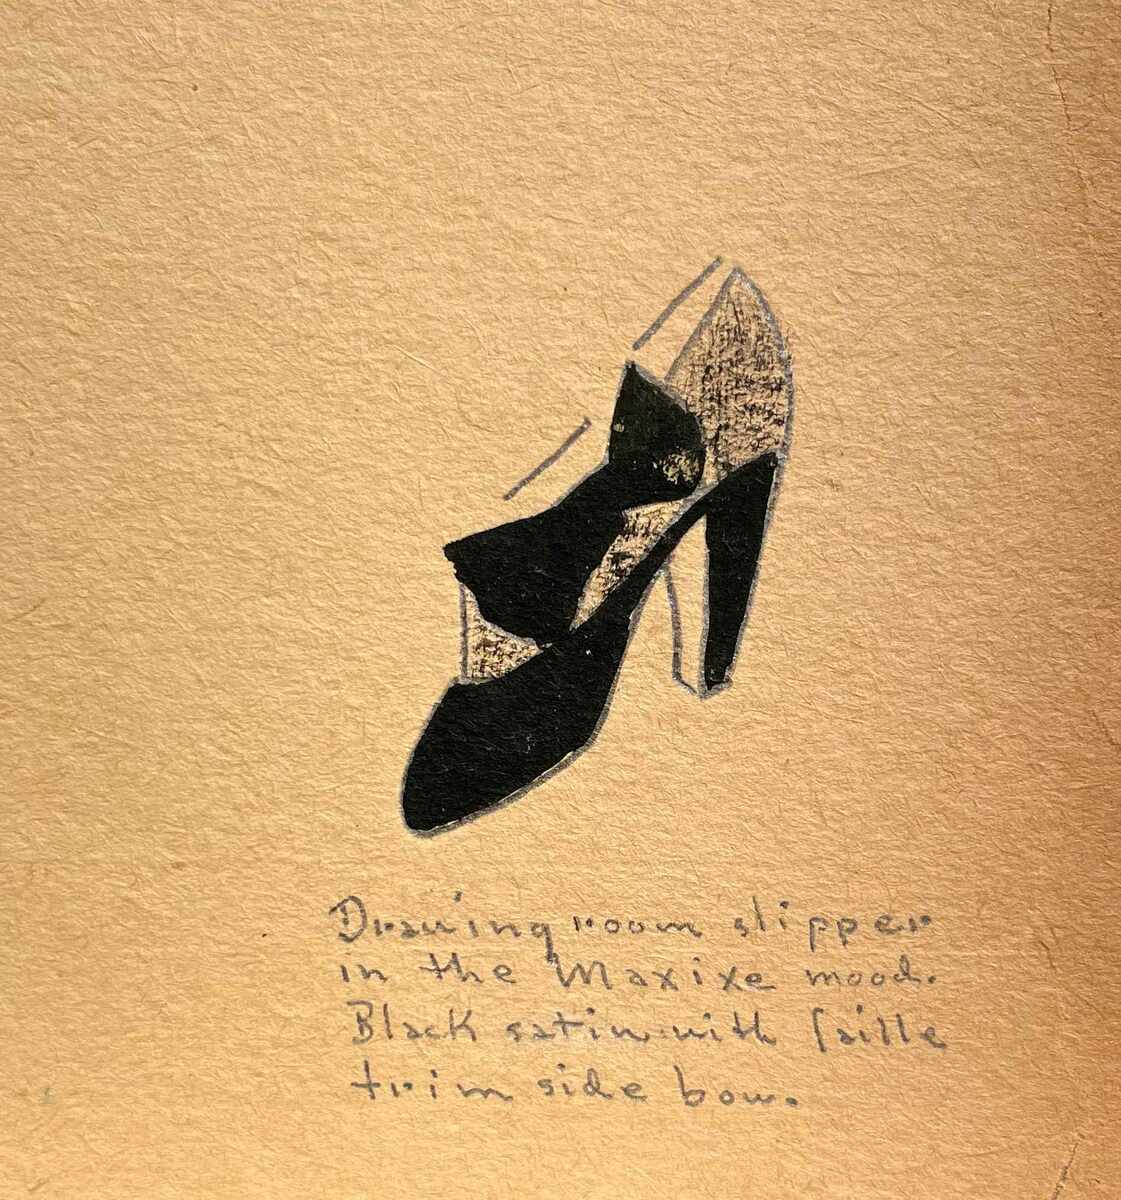 Drawing room slipper
in the Maxixe mood.
Black satin with faille
trim side bow.